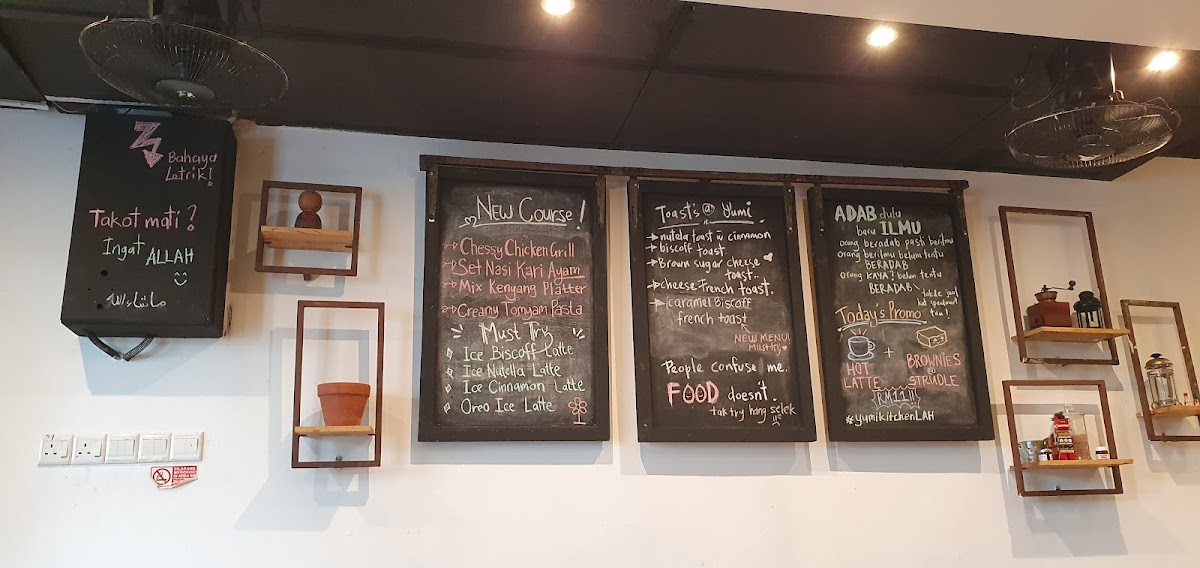 Bahaya
Letrik!
Takot mati?
Ingat ALLAH
ماشاءالله
New Course!
Chessy Chicken Grill
Set Nasi Kari Ayam
Mix Kenyang Platter
Creamy Tomyam Pasta
Must Try
Ice Biscoff Latte
Ice Nutella Latte
Ice Cinnamon Latte
Oreo Ice Latte
Toast's @ Yumi
nutala toast w cinnamon
biscoff toast
Brown sugar cheese
toast..
cheese French toast.
caramel Biscoff
french toast
NEW MENU!
Must try
People confuse me.
FOOD doesn't.
tak try hang selek
ADAB dulu
baru ILMU
orang beradab pasti berilmu
orang berilmu belum tentu
BERADAB
orang KAYA? belum tentu
BERADAB
tak de jual
kat
too!
Today's Promo
HOT
LATTE
+
BROWNIES
@
STRUDLE
RM11!!
#yumikitchenLAH